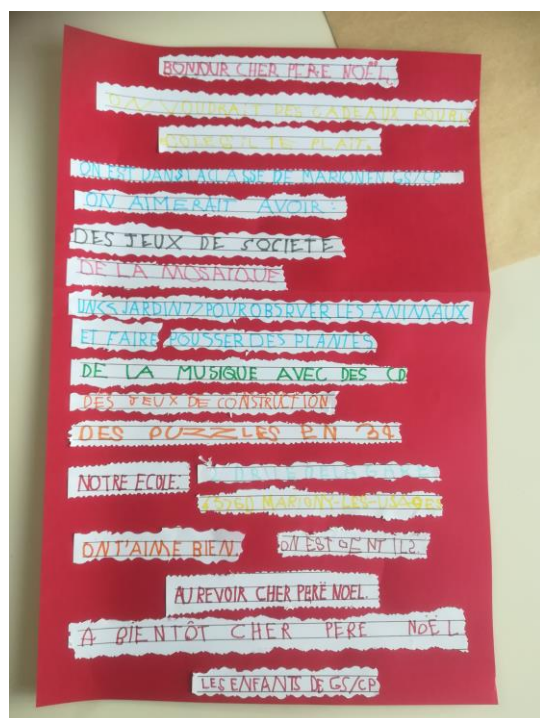 BONJOUR CHER PERE NOËL,
ON VOUDRAIT DES CADEAUX POUR L
S'IL TE PLAIT.
ON EST DANS LA CLASSE DE MARION EN GS/CP
ON AIMERAIT AVOIR :
DES JEUX DE SOCIETE
DE LA MOSAIQUE
JARDIN POUR OBSRVER LES ANIMAUX
ET FAIRE POUSSER DES PLANTES
DE LA MUSIQUE AVEC DES CD
DES JEUX DE CONSTRUCTION
DES PUZZLES EN 3d
NOTRE ECOLE.
45760 MARIGNY-LES-USAGES
ON T'AIME BIEN. ON EST GENTILS.
AU REVOIR CHER PERE NOEL.
A BIENTÔT CHER PERE NOËL
LES ENFANTS DE GS/CP